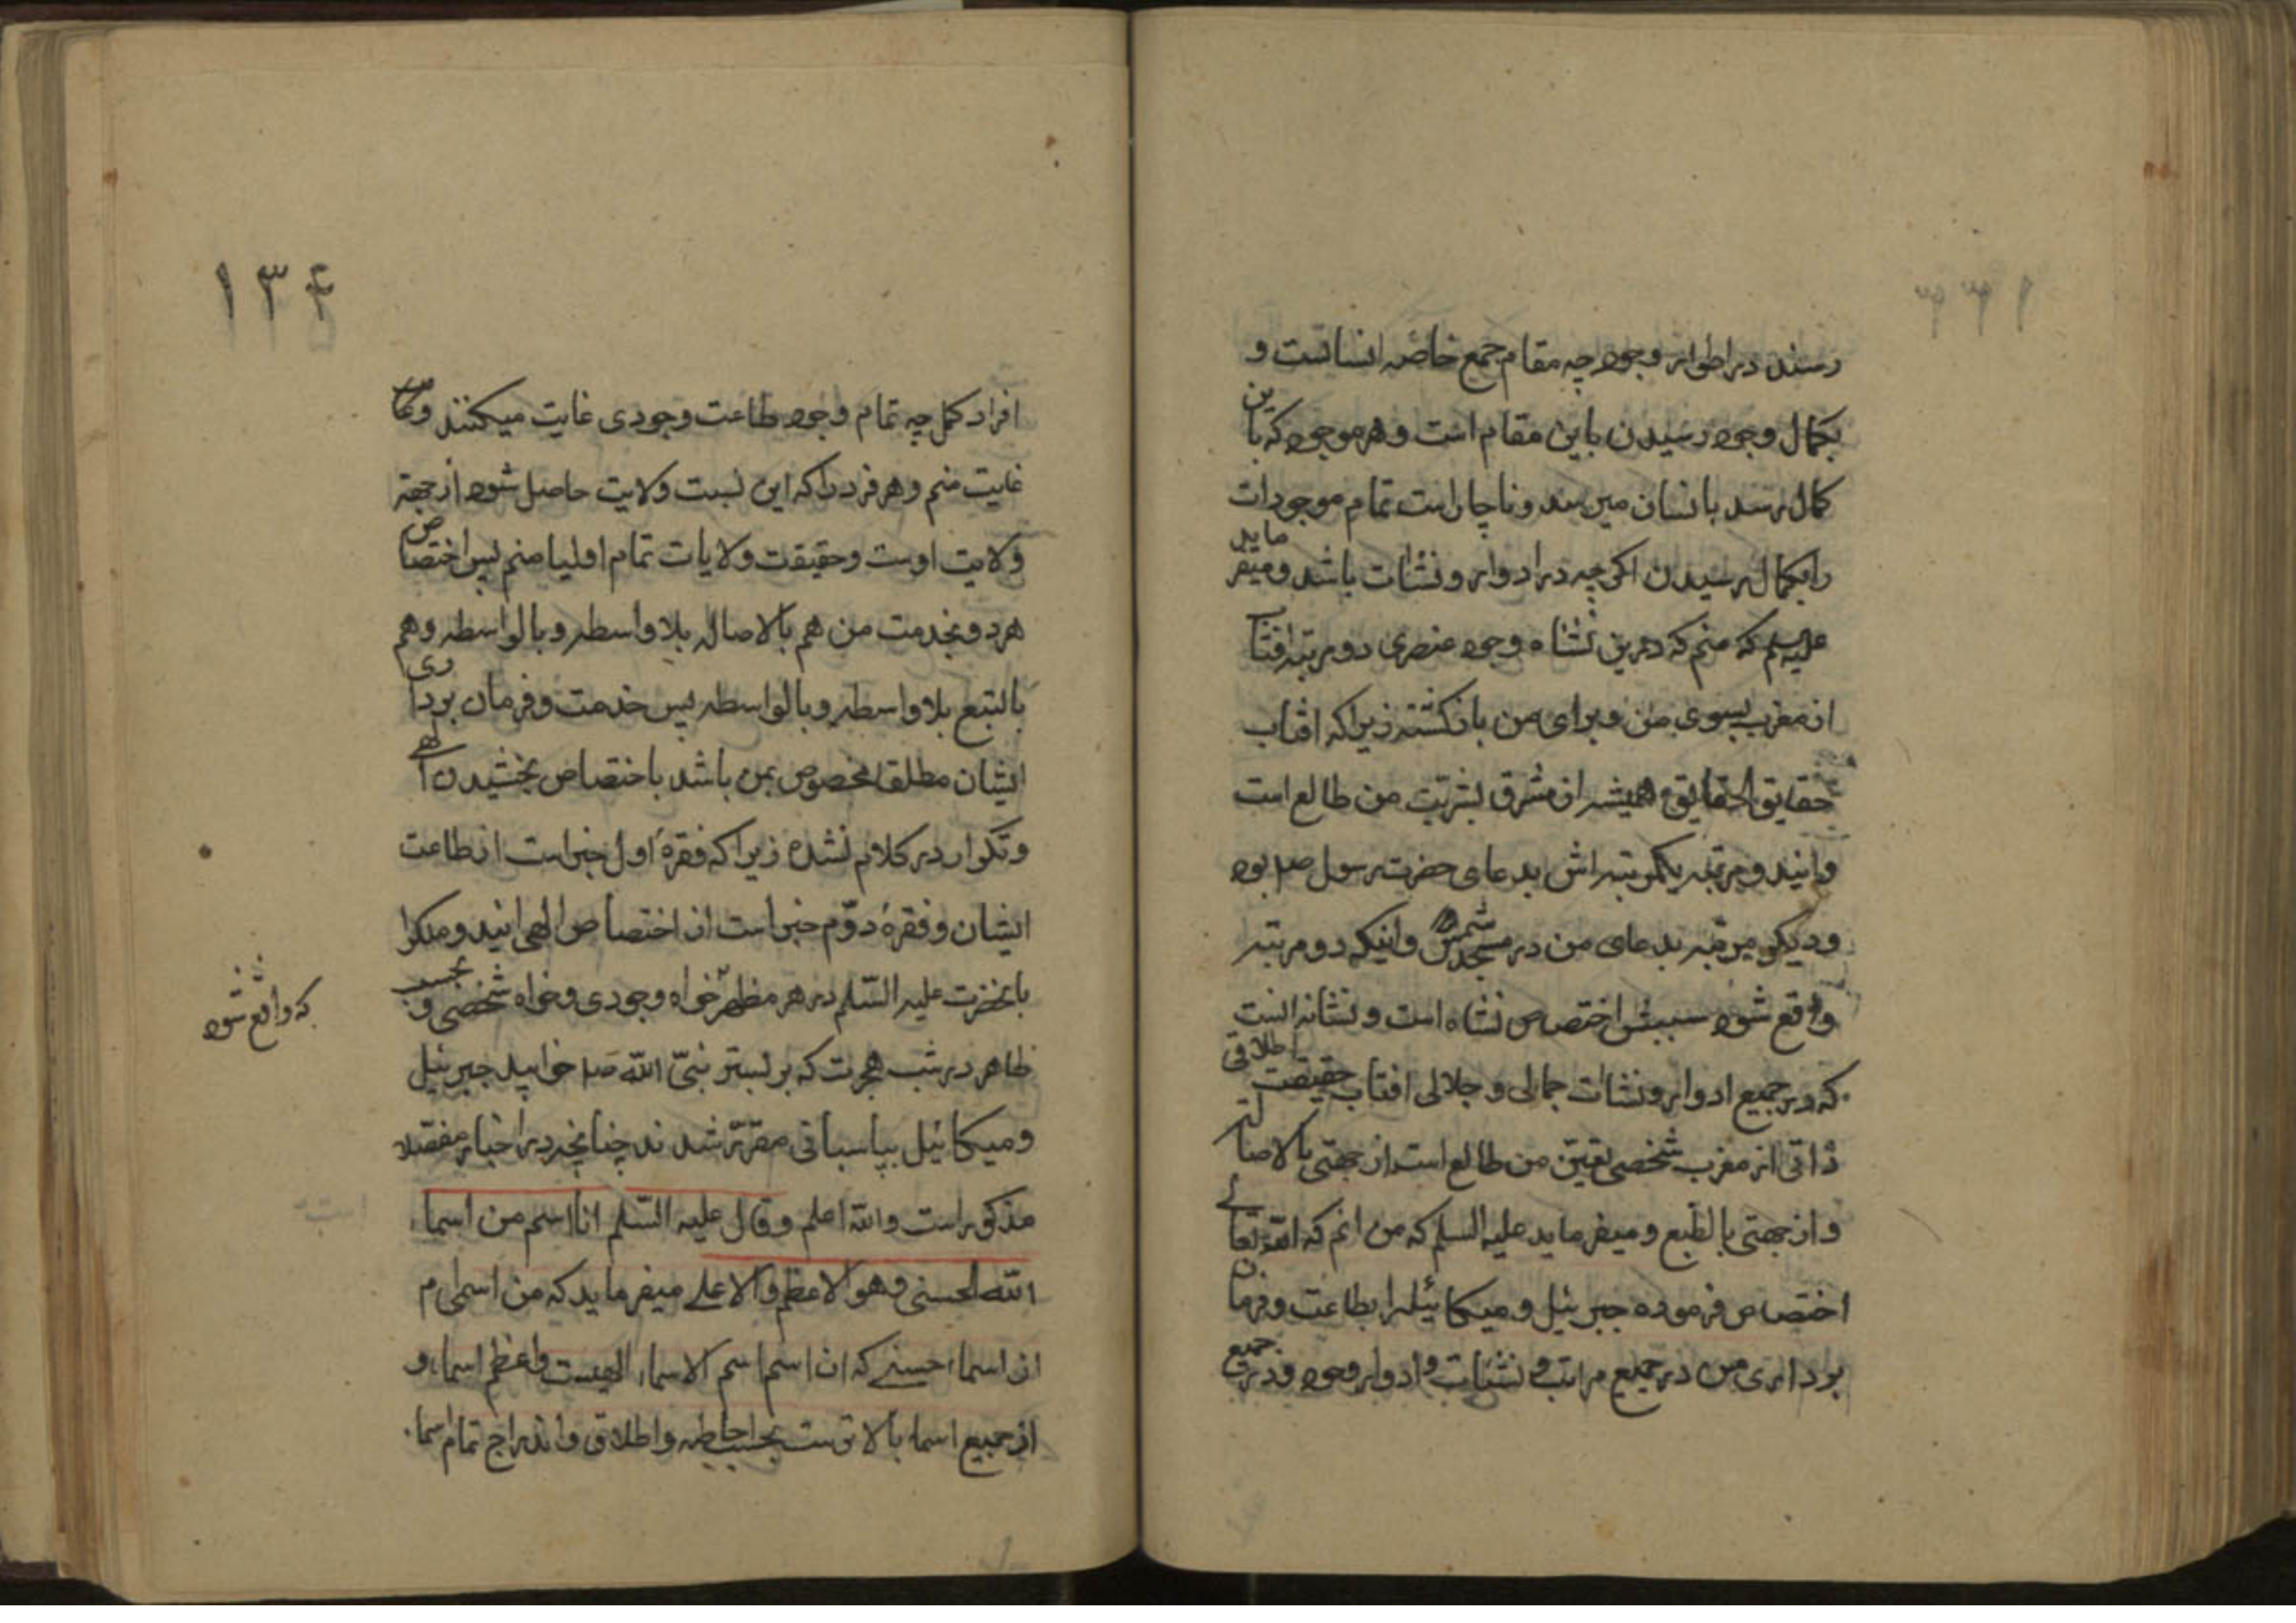 رسند در اطوار وجود چه مقام جمع خاصهٔ انسانست و
بکمال وجود رسیدن باین مقام است و هر موجود که باین
کمال رسد بانسان میرسد و ناچار است تمام موجودات
را بکمال رسیدن اکرچه در ادوار و نشات باشد و میفرماید
علیه السلم که منم که درین نشاه وجود عنصری دو مرتبه افتاب
از مغرب بسوی من و برای من بازکشته زیرا که افتاب
حقایق الحقایق همیشه از مشرق بشریت من طالع است
و اینید و مرتبه یکمرتبه اش بدعای حضرت رسول ص بود
و دیکر مرتبه بدعای من در مسجد شمس و اینکه دو مرتبه
واقع شود سببش اختصاص نشاه است و نشانه انست
که در جمیع ادوار و نشات جمالی و جلالی افتاب حقیقت اطلاقی
ذاتی از مغرب شخصی تعین من طالع است از جهتی بالاصاله
و از جهتی بالطبع و میفرماید علیه السلم که من انم که الله تعالی
اختصاص فرموده جبرئیل و میکائیل را بطاعت و فرمان
برداری من در جمیع مراتب و نشات و ادوار وجود و در جمیع
۱۳۴
افراد کمل چه تمام وجود طاعت وجودی غایت میکنند و
غایت منم و هر فرد را که این نسبت ولایت حاصل شود از جهة
ولایت اوست و حقیقت ولایات تمام اولیا منم پس اختصاص
هر دو بخدمت من هم بالاصاله بلاواسطه و بالواسطه و هم
بالتبع بلاواسطه و بالواسطه پس خدمت و فرمان برداری
ایشان مطلقا مخصوص بمن باشد باختصاص بخشیدن الهی
و تکرار در کلام نشده زیرا که فقرهٔ اول خبر است از طاعت
ایشان و فقرهٔ دوّم خبر است از اختصاص الهی اینید و ملک را
بانحضرت علیه السّلم در هر مظهر خواه وجودی و خواه شخصی و بحسب
که واقع شود
ظاهر در شب هجرت که بر بستر نبیّ الله ص خوابید جبرئیل
و میکائیل بپاسبانی مقرّر شدند چنانچه در اخبار مفصلا
مذکور است والله اعلم و قال علیه السّلم انا اسم من اسماء
الله الحسنی و هو الاعظم و الاعلی میفرماید که من اسمی ام
از اسماء حسنی که ان اسم اسم الاسماء الهیست و اعظم اسماء و
از جمیع اسماء بالاترست بحسب احاطه و اطلاق و اندراج تمام اسماء